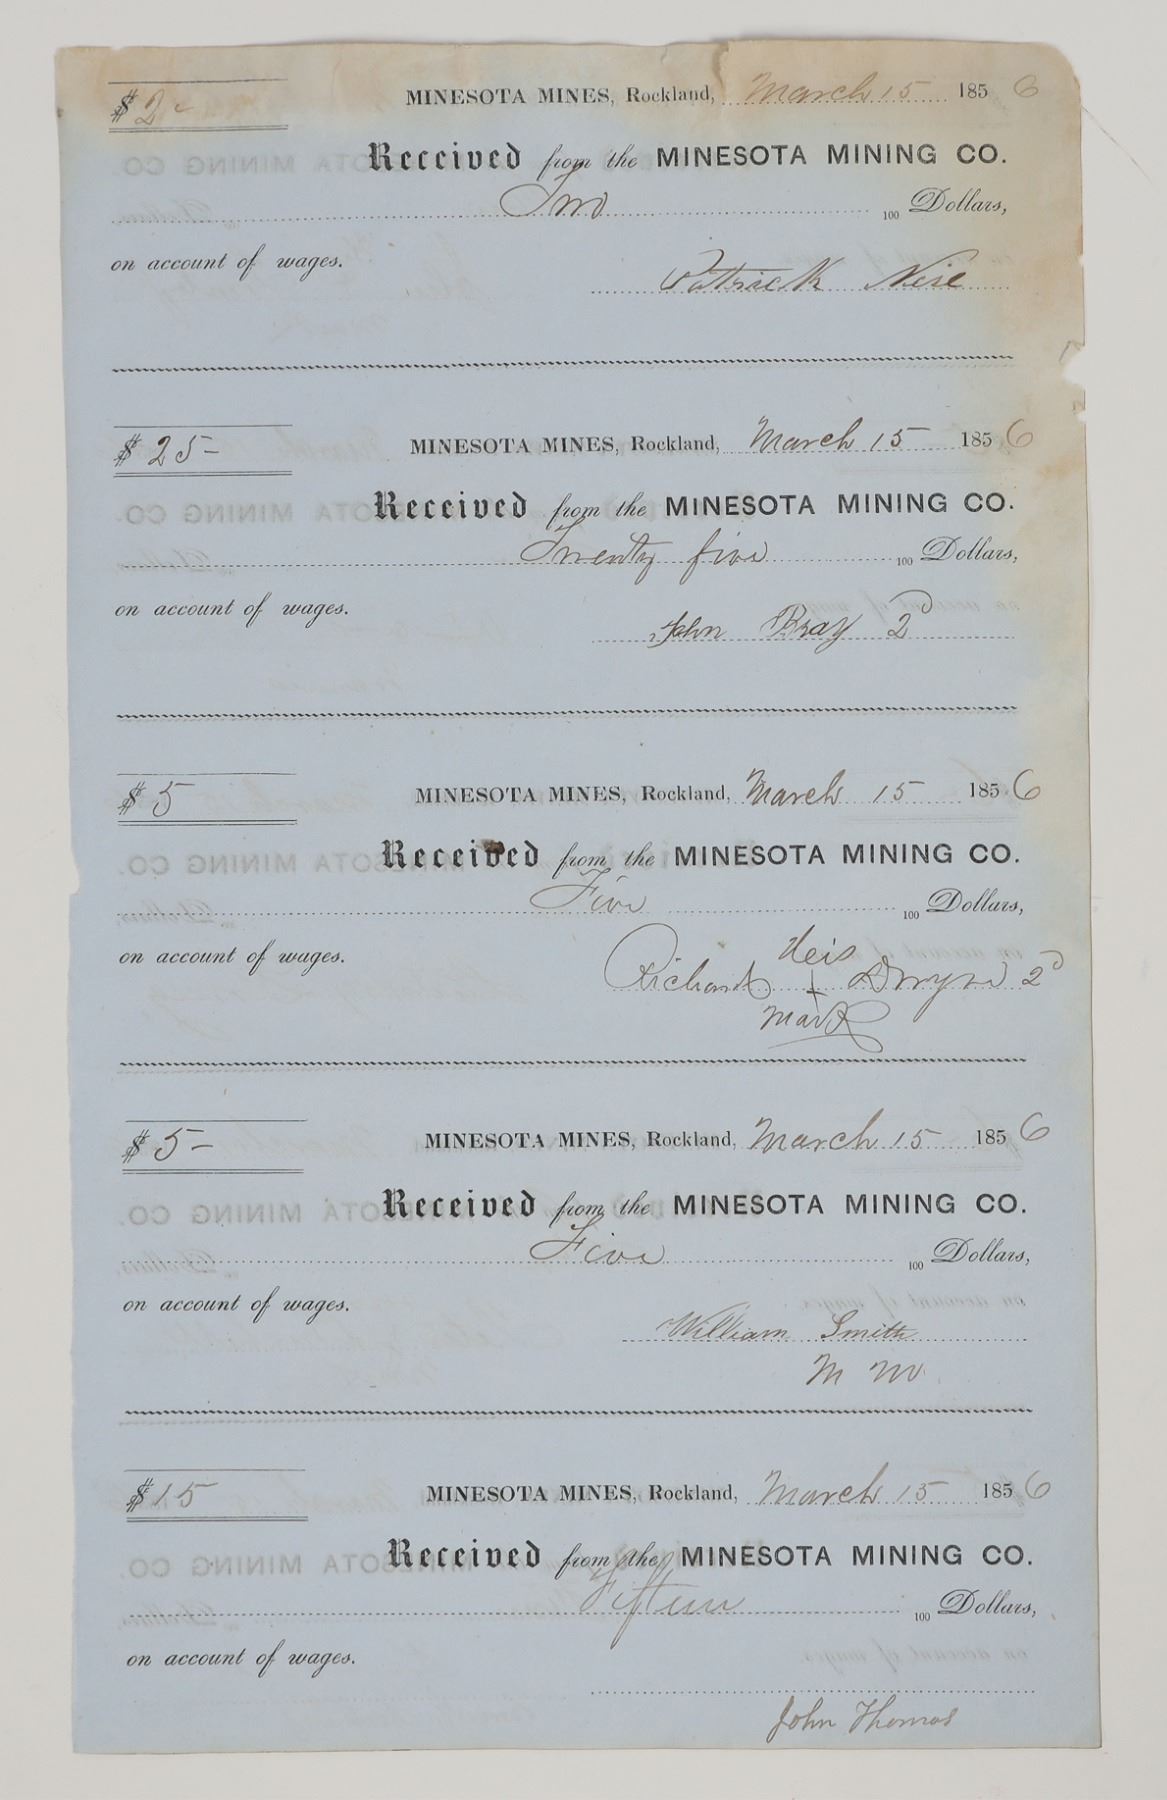 $ 2- MINESOTA MINES, Rockland, March 15 1856
Received from the MINESOTA MINING CO.
Two 100 Dollars,
on account of wages.
Patrick
$ 25- MINESOTA MINES, Rockland, March 15 1856
Received from the MINESOTA MINING CO.
Twenty five 100 Dollars,
on account of wages.
John Bray 2d
$ 5 MINESOTA MINES, Rockland, March 15 1856
Received from the MINESOTA MINING CO.
Five 100 Dollars,
on account of wages.
Heis
Richard + 2d
mark
$ 5- MINESOTA MINES, Rockland, March 15 1856
Received from the MINESOTA MINING CO.
Five 100 Dollars,
on account of wages.
William Smith
$ 15 MINESOTA MINES, Rockland, March 15 1856
Received from the MINESOTA MINING CO.
Fifteen 100 Dollars,
on account of wages.
John Thomas